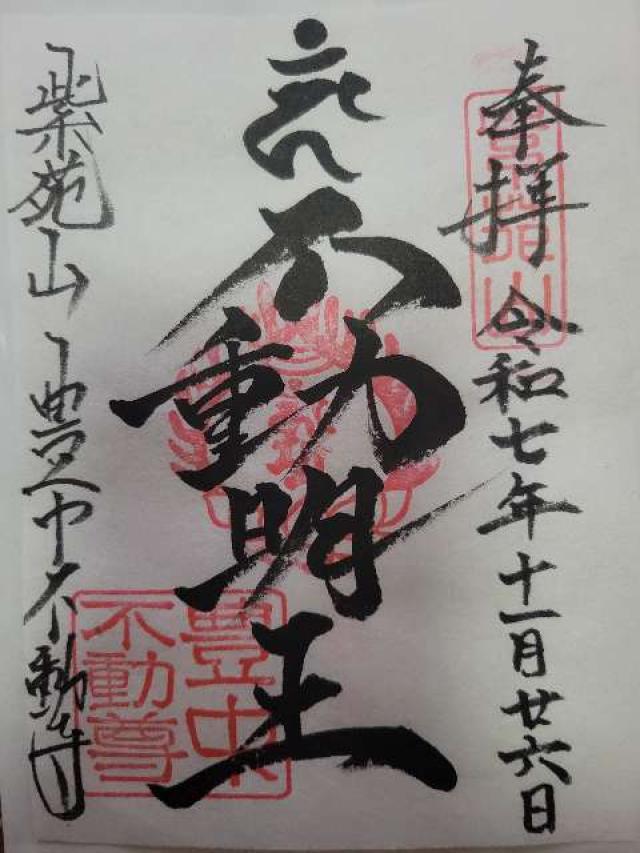 奉拝 令和七年十一月廿六日
紫苑山
不動明王
豊中
不動尊
紫苑山 豊中不動寺